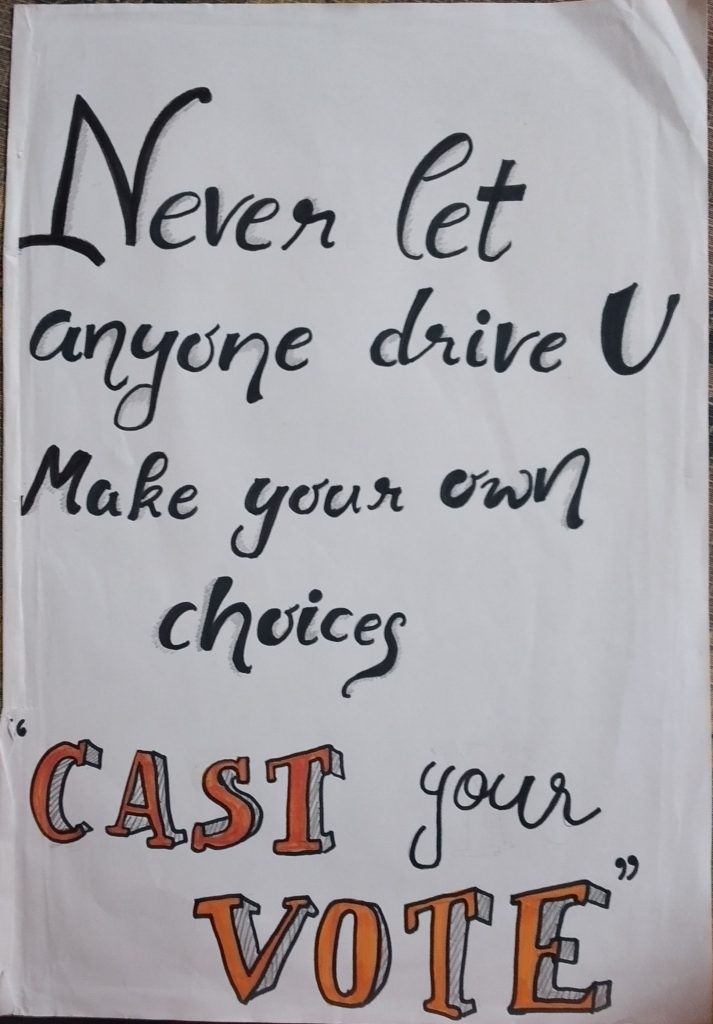 Never let
anyone drive U
Make your own
choices
“CAST your
VOTE”